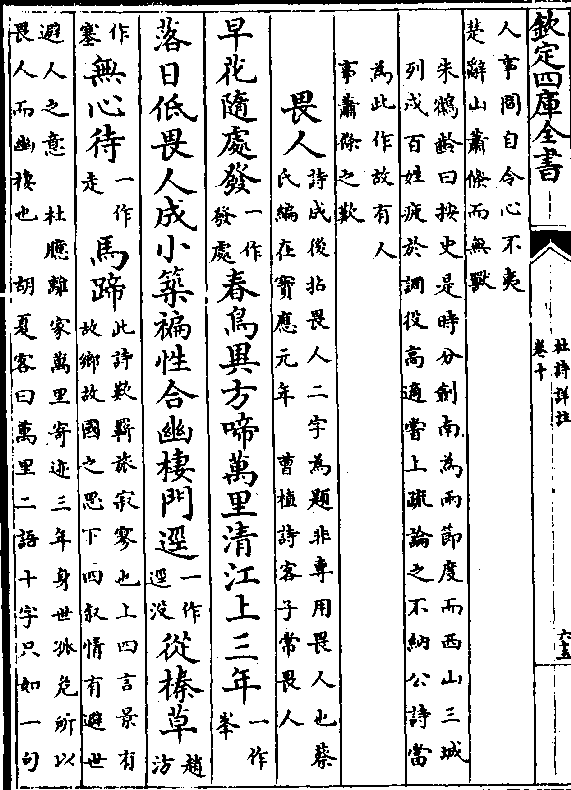 欽定四庫全書
杜詩詳註
卷十
六十五
人事罔自令心不夷
楚辭山蕭條而無獸
朱鶴齡曰按史是時分劍南為兩節度而西山三城
列戍百姓疲於調役高適嘗上疏論之不納公詩當
為此作故有人
事蕭條之歎
畏人詩成後拈畏人二字為題非專用畏人也蔡
氏編在寶應元年 曹植詩客子常畏人
早花隨處發一作發處春鳥異方啼萬里清江上三年一作峯
落日低畏人成小築褊性合幽棲門逕一作逕没從榛草趙汸
作塞無心待一作走馬蹄此詩歎羈旅寂寥也上四言景有
故鄉故國之思下四叙情有避世
避人之意 杜臆離家萬里寄迹三年身世孤危所以
畏人而幽棲也 胡夏客曰萬里二語十字只如一句